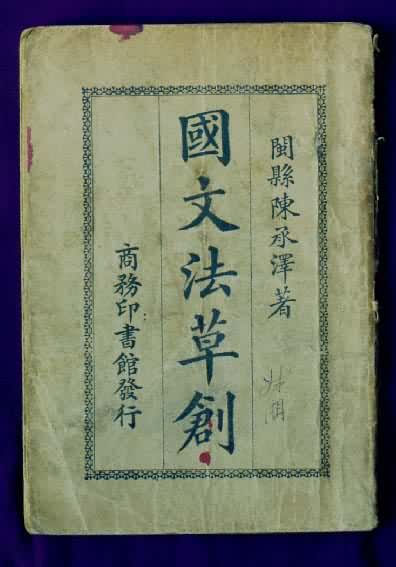 閩縣陳承澤著
國文法草創
商務印書館發行